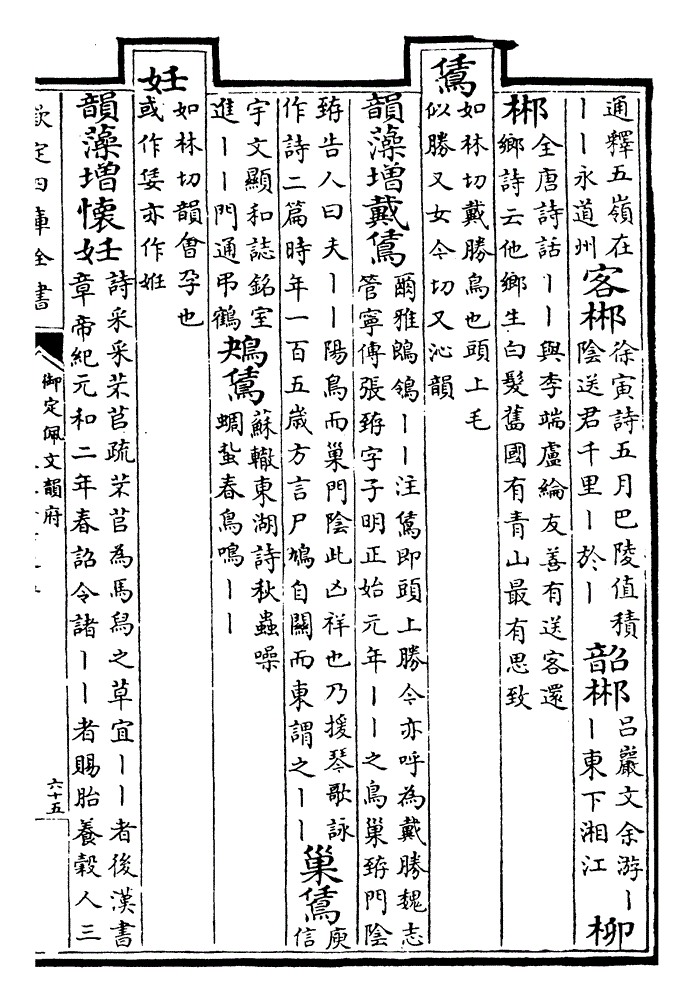 通釋五嶺在
丨丨永道州
客郴
徐寅詩五月巴陵值積
陰送君千里丨於丨
韶郴
呂巖文余游丨
丨東下湘江
柳
郴
全唐詩話丨丨與李端盧綸友善有送客還
鄉詩云他鄉生白髮舊國有青山最有思致
鵀
如林切戴勝鳥也頭上毛
似勝又女今切又沁韻
韻藻增戴鵀
爾雅鵖鴔丨丨注鵀即頭上勝今亦呼為戴勝魏志
管寧傳張臶字子明正始元年丨丨之鳥巢臶門陰
臶告人曰夫丨丨陽鳥而巢門陰此凶祥也乃援琴歌詠
作詩二篇時年一百五歲方言尸鳩自關而東謂之丨丨
巢鵀
庾
信
宇文顯和誌銘室
進丨丨門通弔鶴
鴂鵀
蘇轍東湖詩秋蟲噪
蜩蛩春鳥鳴丨丨
妊
如林切韻會孕也
或作亦作姙
韻藻增懷妊
詩采采芣苢疏芣苢為馬舄之草宜丨丨者後漢書
章帝紀元和二年春詔令諸丨丨者賜胎養穀人三
欽定四庫全書
御定佩文韻府
六十五